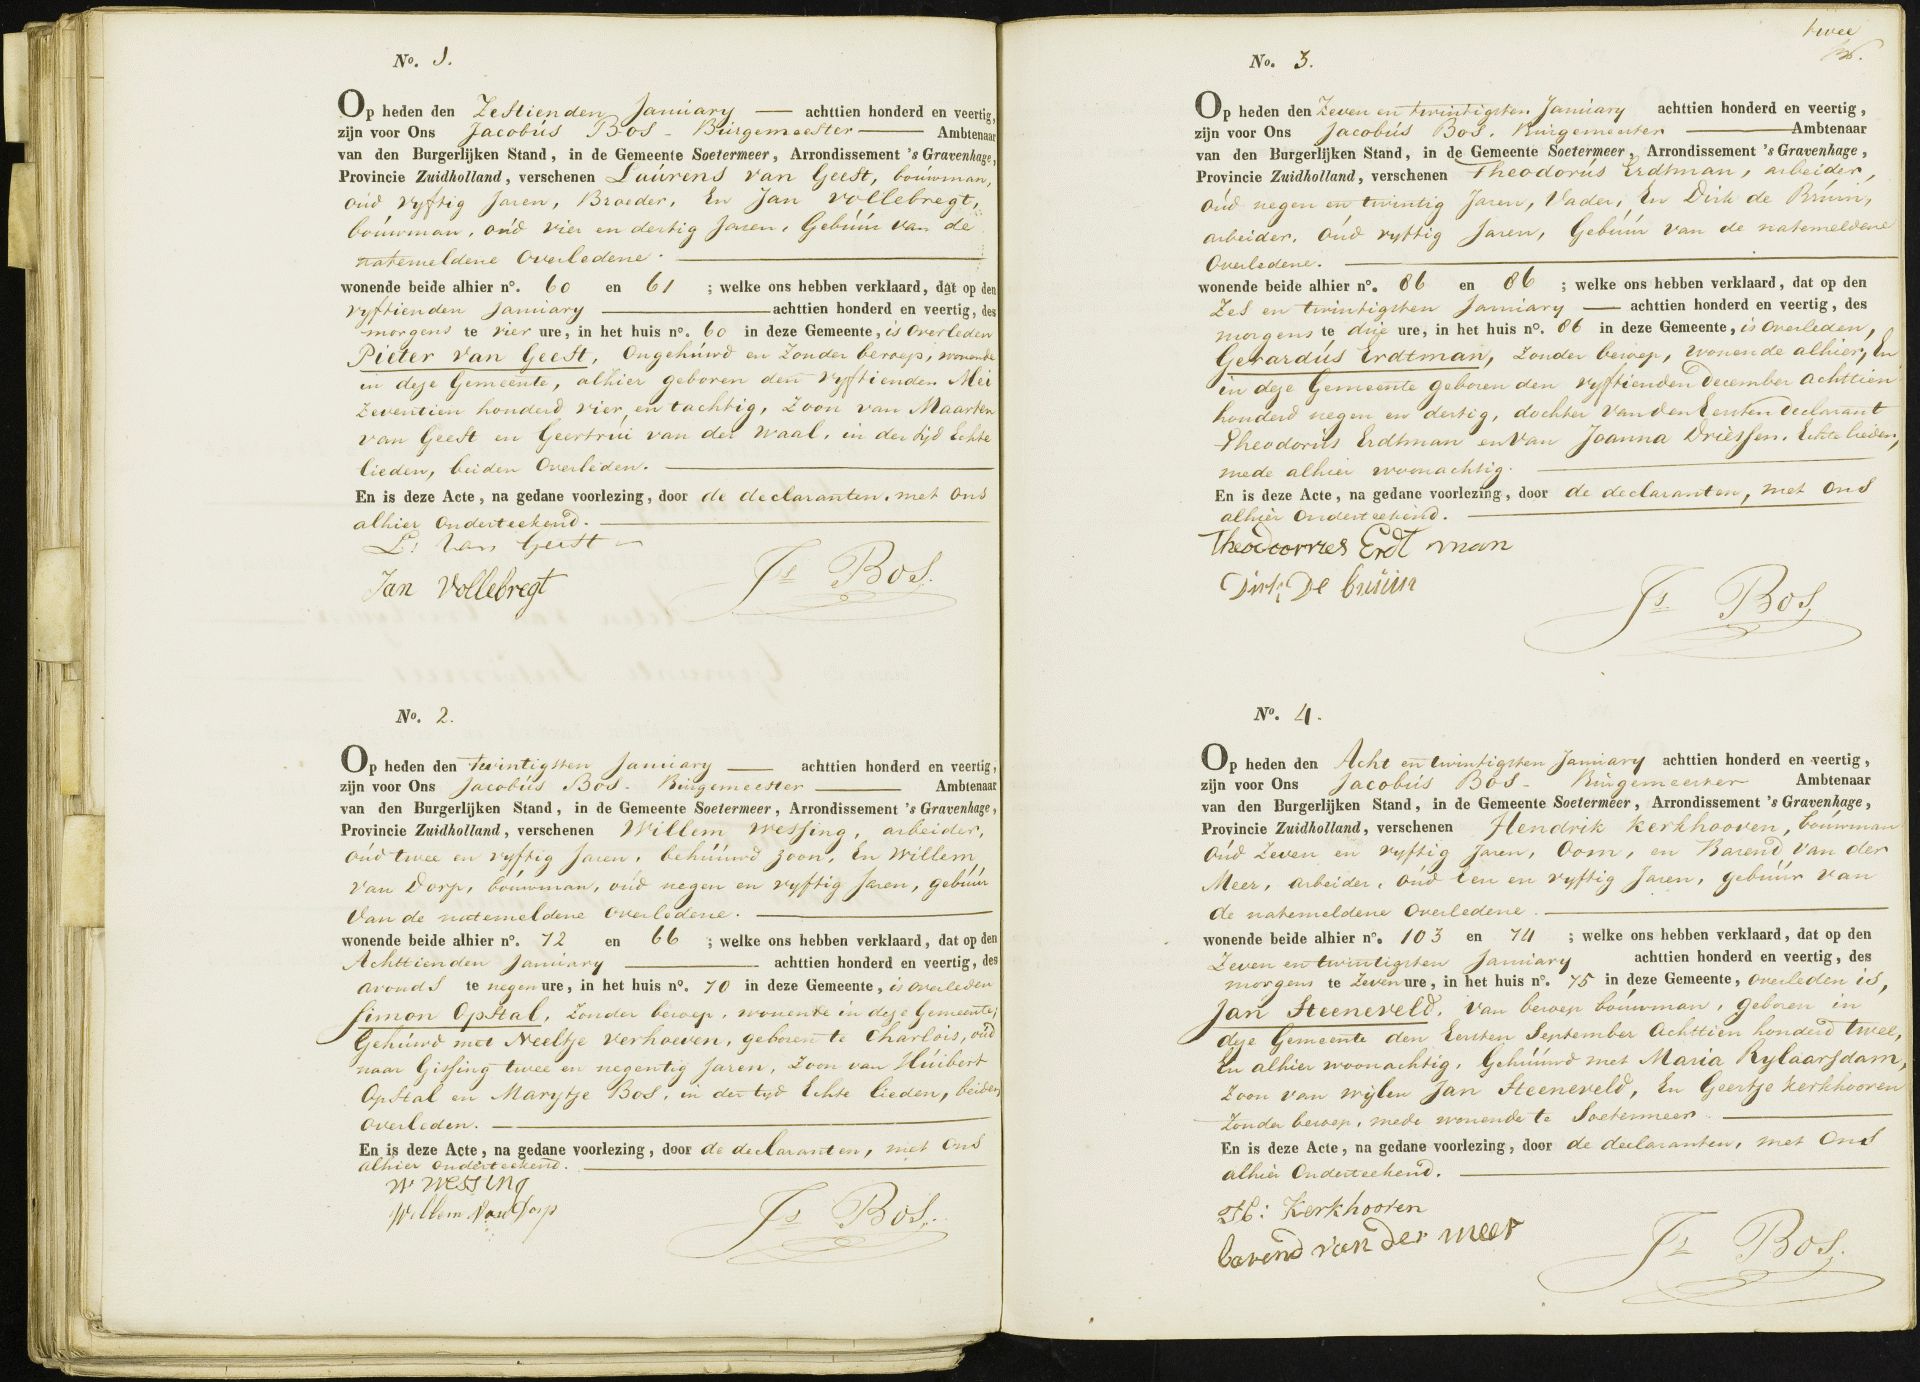 No. 1.
Op heden den Zestienden January — achttien honderd en veertig,
zijn voor Ons Jacobús Bos - Burgemeester — Ambtenaar
van den Burgerlijken Stand, in de Gemeente Soetermeer, Arrondissement 's Gravenhage,
Provincie Zuidholland, verschenen Laúrens van Geest, boúwman,
oúd vyftig Jaren, Broeder, En Jan Vollebregt,
boúwman, oúd vier en dertig Jaren, Gebúúr van de
natemeldene Overledene. —
wonende beide alhier no. 60 en 61 ; welke ons hebben verklaard, dat op den
vyftienden January — achttien honderd en veertig, des
morgens te vier ure, in het huis no. 60 in deze Gemeente, is Overleden
Pieter van Geest, Ongehúwd en Zonder beroep, wonende
in deze Gemeente, alhier geboren den vyftienden Mei
Zeventien honderd vier en tachtig, Zoon van Maarten
van Geest en Geertrúi van der Waal, in der tijd Echte
lieden, beiden Overleden. —
En is deze Acte, na gedane voorlezing, door de declaranten, met Ons
alhier Onderteekend. —
L: Van Geest
Jan Vollebregt
Js Bos.
No. 2.
Op heden den twintigsten January — achttien honderd en veertig,
zijn voor Ons Jacobús Bos - Burgemeester — Ambtenaar
van den Burgerlijken Stand, in de Gemeente Soetermeer, Arrondissement 's Gravenhage,
Provincie Zuidholland, verschenen Willem Wessing, arbeider,
oúd twee en vyftig Jaren, behúúwd zoon, En Willem
van Dorp, boúwman, oúd negen en vyftig Jaren, gebúúr
van de natemeldene Overledene. —
wonende beide alhier no. 72 en 66 ; welke ons hebben verklaard, dat op den
Achttienden January — achttien honderd en veertig, des
avonds te negen ure, in het huis no. 70 in deze Gemeente, is overleden
Simon Opstal, Zonder beroep, wonende in deze Gemeente,
Gehúwd met Neeltje Verhoeven, geboren te Charlois, oúd
naar Gissing twee en negentig Jaren, Zoon van Húibert
Opstal en Marytje Bos, in der tyd Echte lieden, beiden
overleden. —
En is deze Acte, na gedane voorlezing, door de declaranten, met Ons
alhier onderteekend. —
W Wessing
Willem van Dorp
Js Bos.
twee
No. 3.
Op heden den Zeven en twintigsten January achttien honderd en veertig,
zijn voor Ons Jacobús Bos. Burgemeester — Ambtenaar
van den Burgerlijken Stand, in de Gemeente Soetermeer, Arrondissement 's Gravenhage,
Provincie Zuidholland, verschenen Theodorús Erdtman, arbeider,
oúd negen en twintig Jaren, Vader, En Dirk de Brúin,
arbeider, Oúd vyftig Jaren, Gebúúr van de natemeldene
Overledene. —
wonende beide alhier no. 86 en 86 ; welke ons hebben verklaard, dat op den
Zes en twintigsten January — achttien honderd en veertig, des
morgens te drie ure, in het huis no. 86 in deze Gemeente, is Overleden,
Gerardús Erdtman, Zonder beroep, wonende alhier, En
in deze Gemeente geboren den vyftienden December achttien
honderd negen en dertig, dochter van den Eersten declarant
Theodorús Erdtman en van Joanna Driessen. Echtelieden,
mede alhier woonachtig. —
En is deze Acte, na gedane voorlezing, door de declaranten, met Ons
alhier Onderteekend. —
Theodorries Erdt man
Dirk De bruiin
Js Bos
No. 4.
Op heden den Acht en twintigsten January achttien honderd en veertig,
zijn voor Ons Jacobús Bos - Burgemeester Ambtenaar
van den Burgerlijken Stand, in de Gemeente Soetermeer, Arrondissement 's Gravenhage,
Provincie Zuidholland, verschenen Hendrik Kerkhooven, boúwman
oúd Zeven en vyftig Jaren, Oom, en Barend van der
Meer, arbeider, oúd een en vyftig Jaren, gebúúr van
de natemeldene Overledene. —
wonende beide alhier no. 103 en 74 ; welke ons hebben verklaard, dat op den
Zeven en twintigsten January achttien honderd en veertig, des
morgens te Zeven ure, in het huis no. 75 in deze Gemeente, overleden is,
Jan Steeneveld, van beroep boúwman, geboren in
deze Gemeente den Eersten September Achttien honderd twee,
En alhier woonachtig, Gehúúwd met Maria Rylaarsdam,
Zoon van wijlen Jan Steeneveld, En Geertje Kerkhooven
Zonder beroep, mede wonende te Soetermeer —
En is deze Acte, na gedane voorlezing, door de declaranten, met Ons
alhier Onderteekend. —
H: Kerkhooven
barend van der meer
Js Bos.